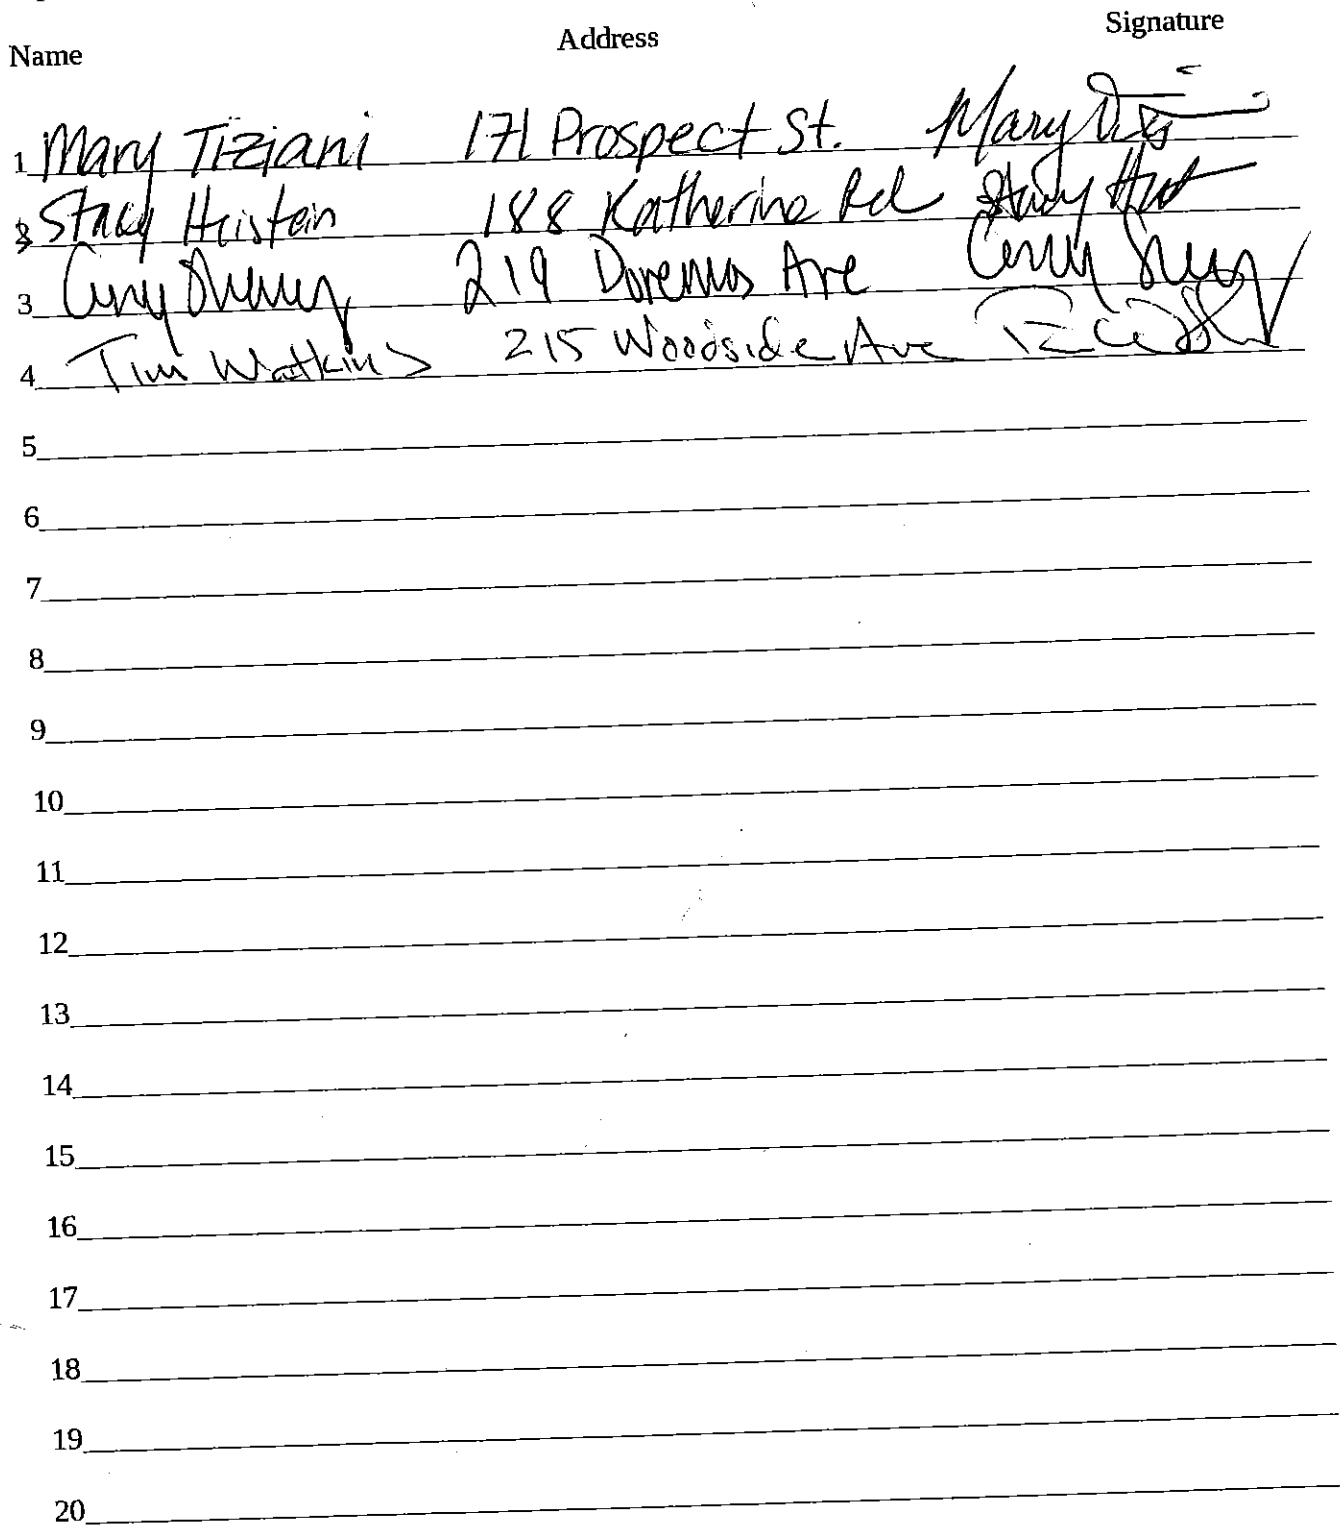 Name Address Signature
1 Mary Tiziani 171 Prospect St. Mary
2 Stacy Heistein 188 Katherine Rd Stacy
3 219 Doremus Ave
4 Tim Watkins 215 Woodside Ave
5
6
7
8
9
10
11
12
13
14
15
16
17
18
19
20